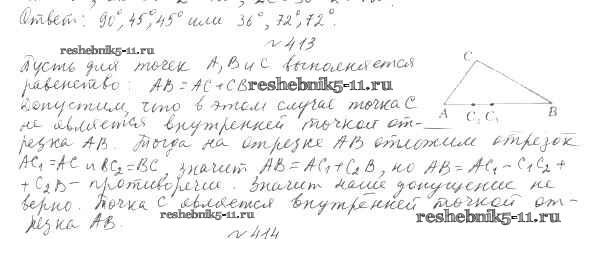 Ответ: 90°, 45°, 45° или 36°, 72°, 72°.
№413
reshebnik5-11.ru
Пусть для точек A, B и C выполняется
равенство: AB = AC + CB
reshebnik5-11.ru
Допустим, что в этом случае точка C
не является внутренней точкой от-
резка AB. Тогда на отрезке AB отложим отрезок
AC₁ = AC и BC₂ = BC, значит AB = AC₁ + C₂B, но AB = AC₁ - C₁C₂ +
+ C₂B - противоречие. Значит наше допущение не
верно. Точка C является внутренней точкой от-
reshebnik5-11.ru
reshebnik5-11.ru
резка AB.
№414
C
A
C₂
C₁
B